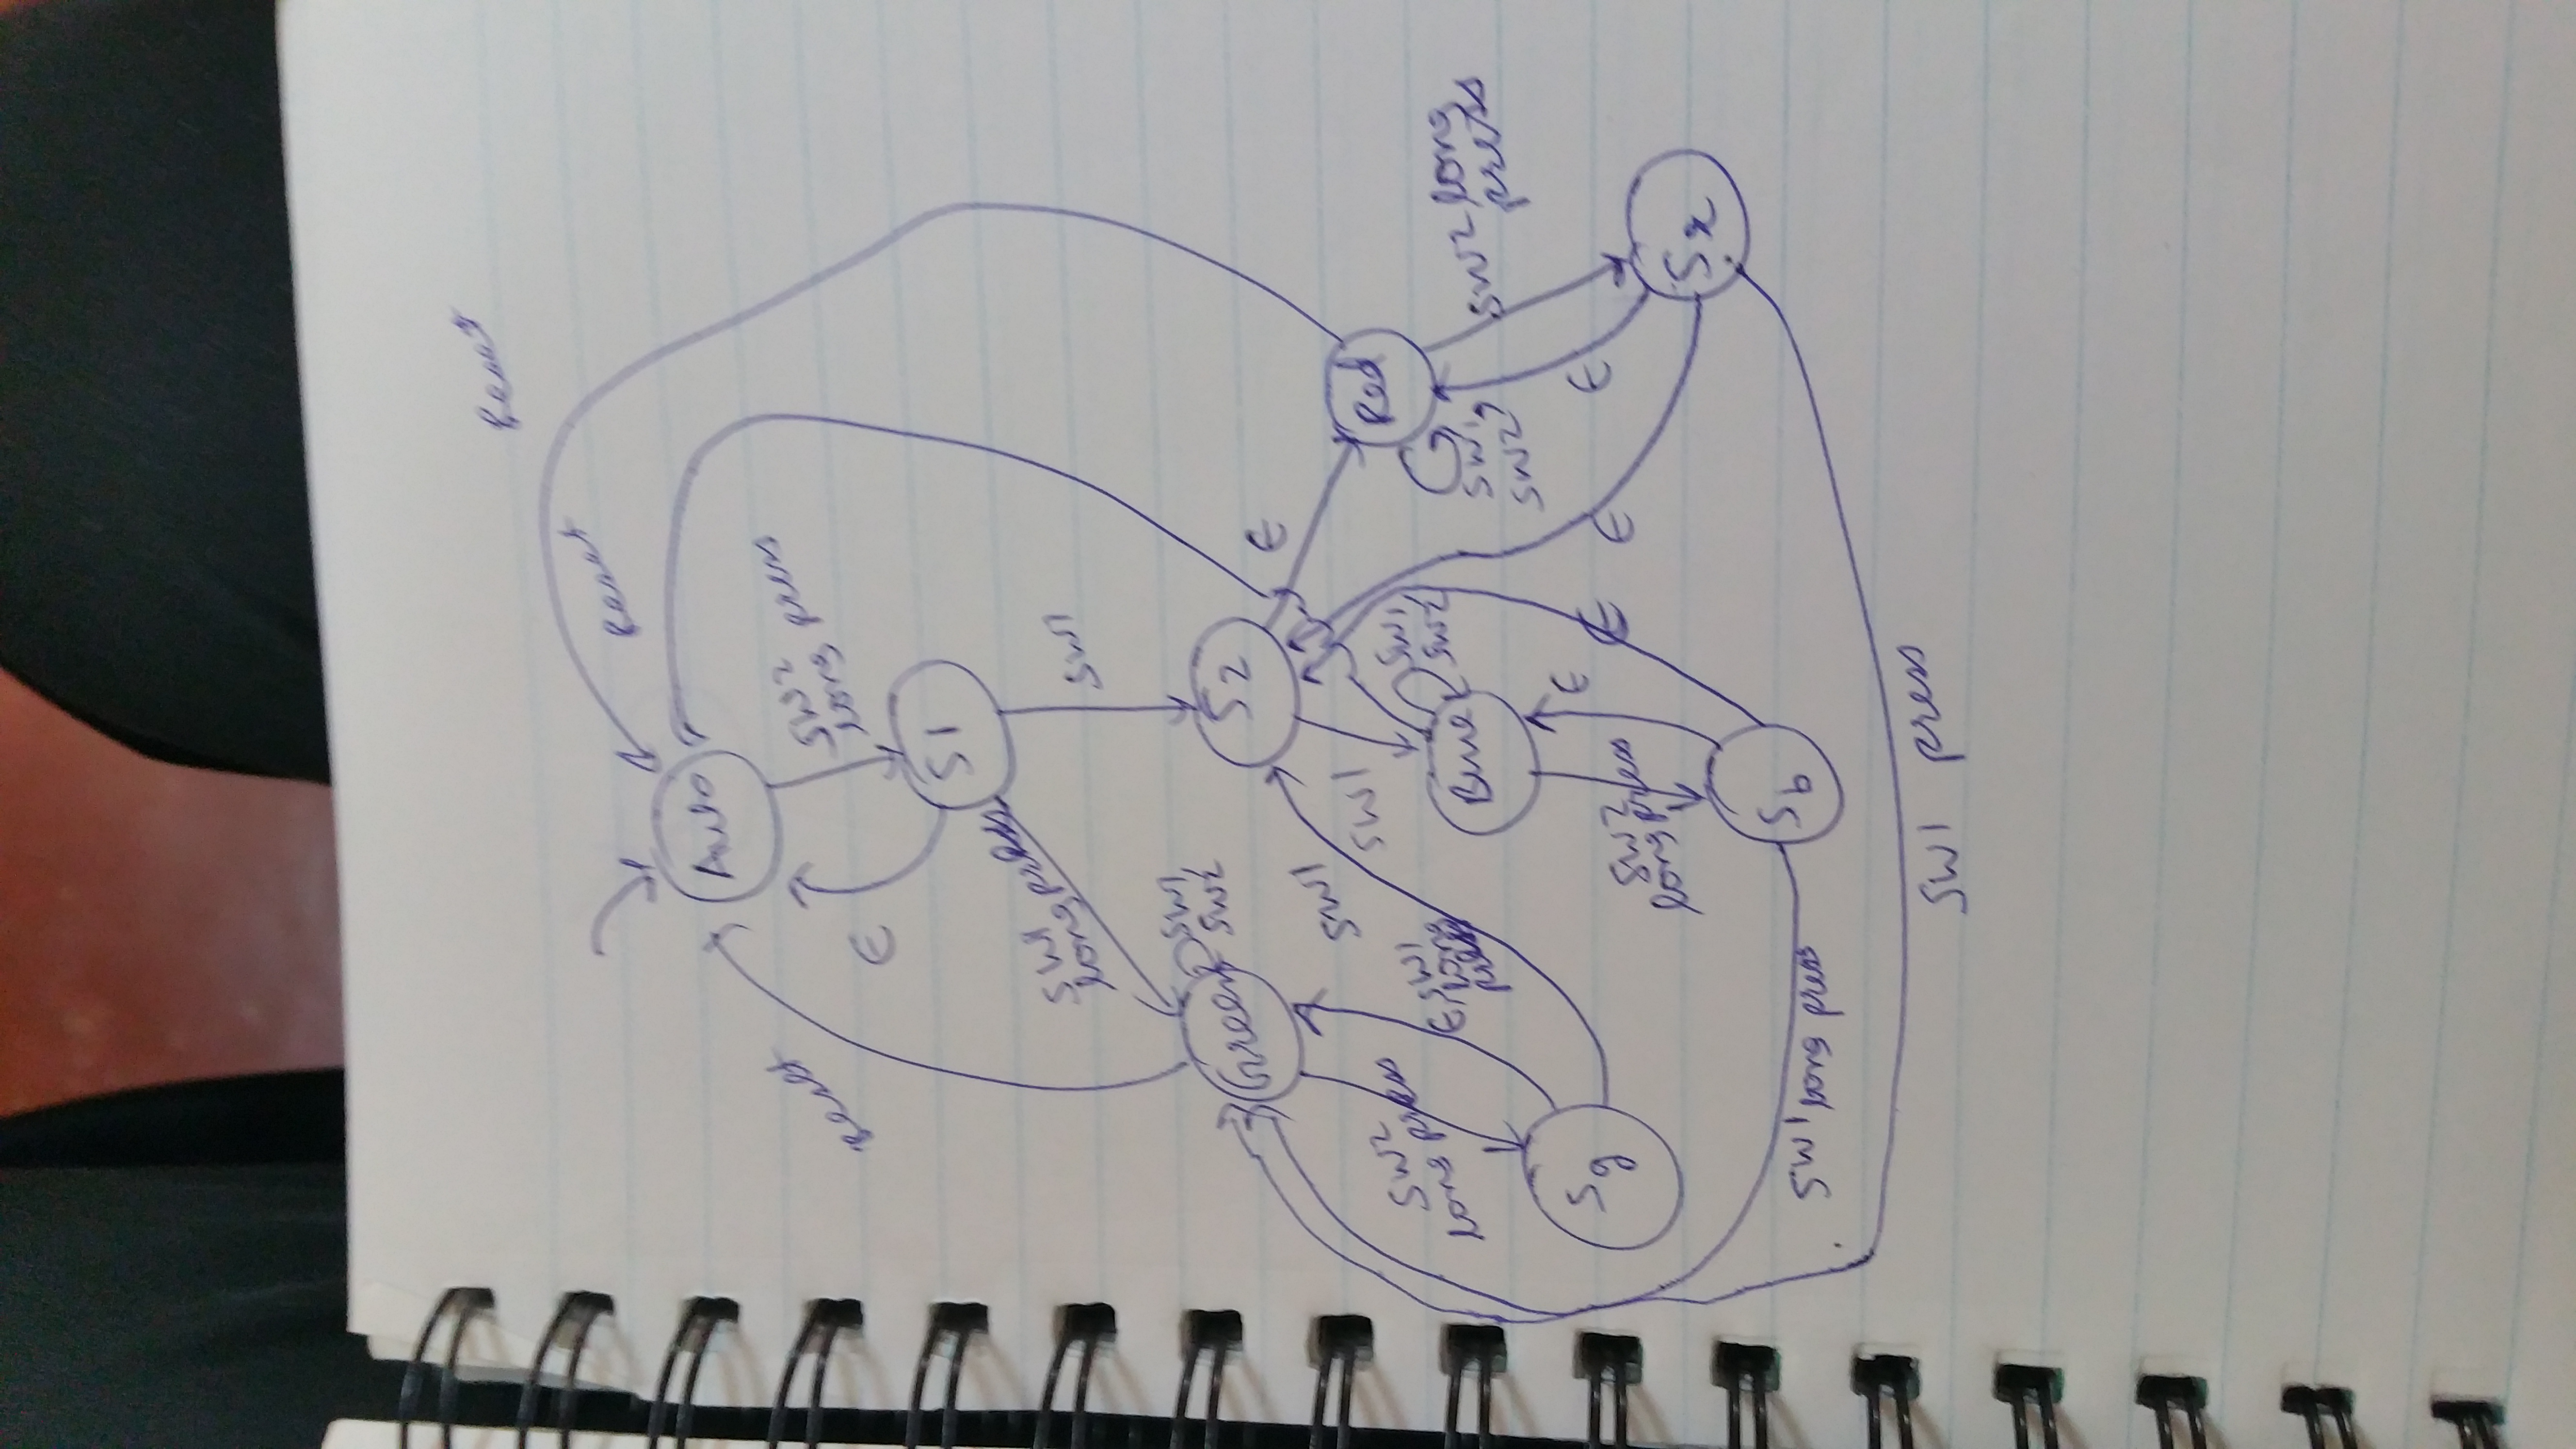 Reset
Reset
Auto
reset
SW2
long press
Є
S1
SW1
long press
SW1
Green
SW1,
SW2
S2
Є
SW1
SW1
Red
SW2
long press
Є, SW1
long
press
Blue
SW1,
SW2
SW1,
SW2
SW2 long
press
Sg
Є
Є
Є
Є
SW2
long press
Sb
SW1 long press
SW1 press